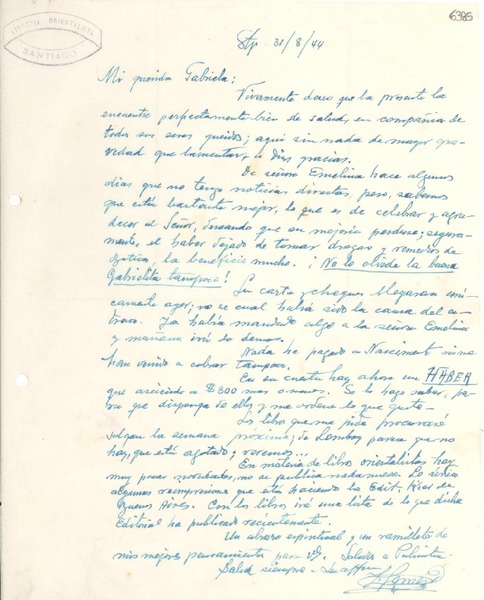 6385
LIBRERIA ORIENTALISTA
SANTIAGO
Stgo. 31/8/44
Mi querida Gabriela:
Vivamente deseo que la presente la
encuentre perfectamente bien de salud, en compañía de
todos sus seres queridos; aquí sin nada de mayor gra-
vedad que lamentar, a Dios gracias.
De señora Emelina hace algunos
días que no tengo noticias directas, pero, sabemos
que está bastante mejor, lo que es de celebrar y agra-
decer al Señor, deseando que su mejoría perdure; segura-
mente, el haber dejado de tomar drogas y remedios de
botica, la beneficie mucho. ¡No lo olvide la buena
Gabrielita tampoco!
Su carta y cheques llegaron úni-
camente ayer; no se cual habrá sido la causa del a-
traso. Ya había mandado algo a la señora Emelina
y mañana irá lo demás.
Nada he pagado a Nascimento ni me
han venido a cobrar tampoco.
En su cuenta hay ahora un HABER
que asciende a $800 mas o menos. Se lo hago saber, pa-
ra que disponga de ellos y me ordene lo que guste.
Los libros que me pide procuraré
salgan la semana próxima; de Lombas parece que no
hay, que está agotado; veremos...
En materia de libros orientalistas hay
muy pocas novedades, no se publica nada nuevo. Lo único
algunas reimpresiones que está haciendo la Edit. Kier de
Buenos Aires. Con los libros irá una lista de lo que dicha
Editorial ha publicado recientemente.
Un abrazo espiritual y un ramillete de
mis mejores pensamientos para Ud. Saludos a Palmita.
Salud siempre.